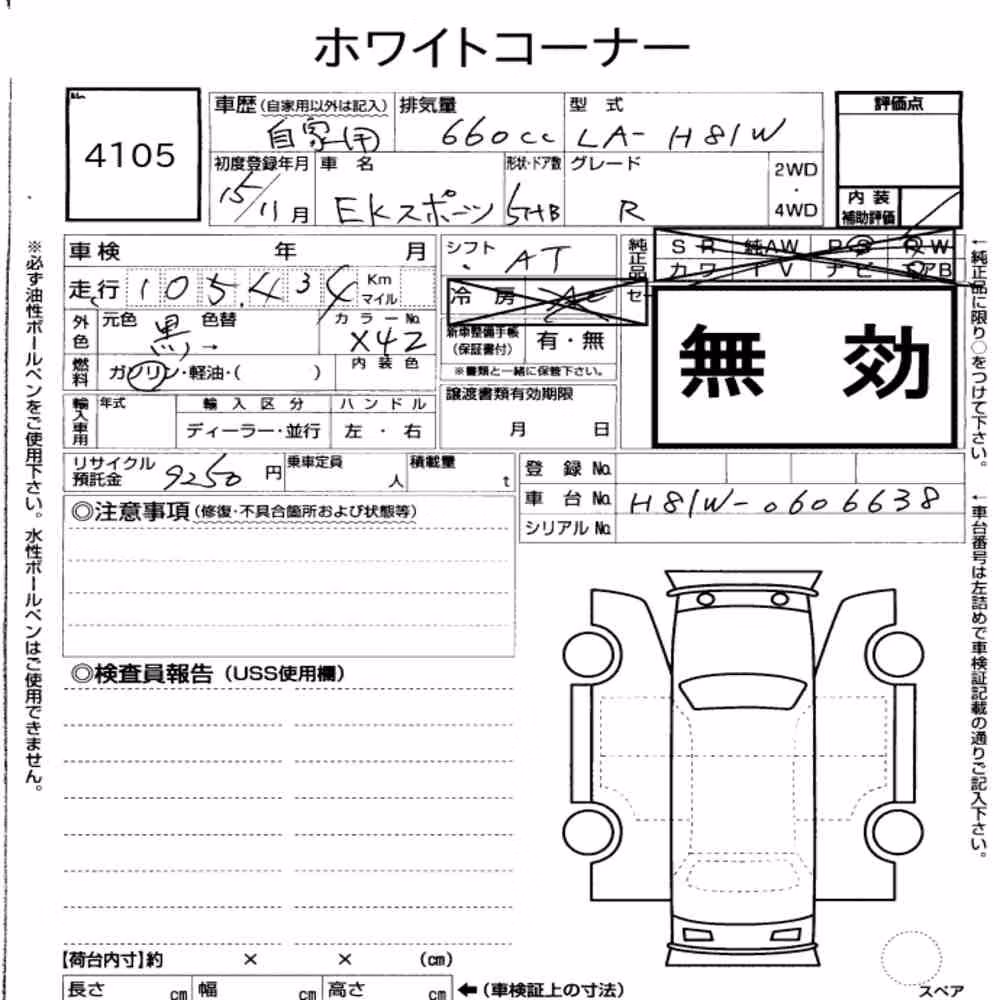 ホワイトコーナー
4105
車歴(自家用以外は記入) 排気量 型式 評価点
自家用 660cc LA-H81W
初度登録年月 車名 形状・ドア数 グレード 2WD・4WD
15/11月 EKスポーツ 5HB R
内装補助評価
車検 年 月 シフト AT 純正品 SR 純AW PS PW
カワ TV ナビ エアB
走行 105,434 Km マイル 冷房 AC
外色 元色 黒 色替 → カラーNo. X42
新車整備手帳(保証書付) 有・無
無効
燃料 ガソリン・軽油・( ) 内装色
※書類と一緒に保管下さい。
輸入車用 年式 輸入区分 ハンドル 譲渡書類有効期限
ディーラー・並行 左・右 月 日
リサイクル預託金 9250円 乗車定員 人 積載量 t 登録No.
車台No. H81W-0606638
シリアルNo.
◎注意事項(修復・不具合箇所および状態等)
◎検査員報告(USS使用欄)
【荷台内寸】約 × × (cm)
長さ cm 幅 cm 高さ cm ←(車検証上の寸法)
スペア
※必ず油性ボールペンをご使用下さい。水性ボールペンはご使用できません。
←純正品に限り○をつけて下さい。
←車台番号は左詰めで車検証記載の通りご記入下さい。